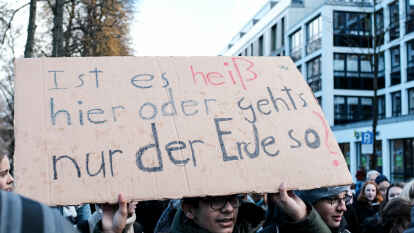 Ist es heiß
hier oder gehts
nur der Erde so?
P